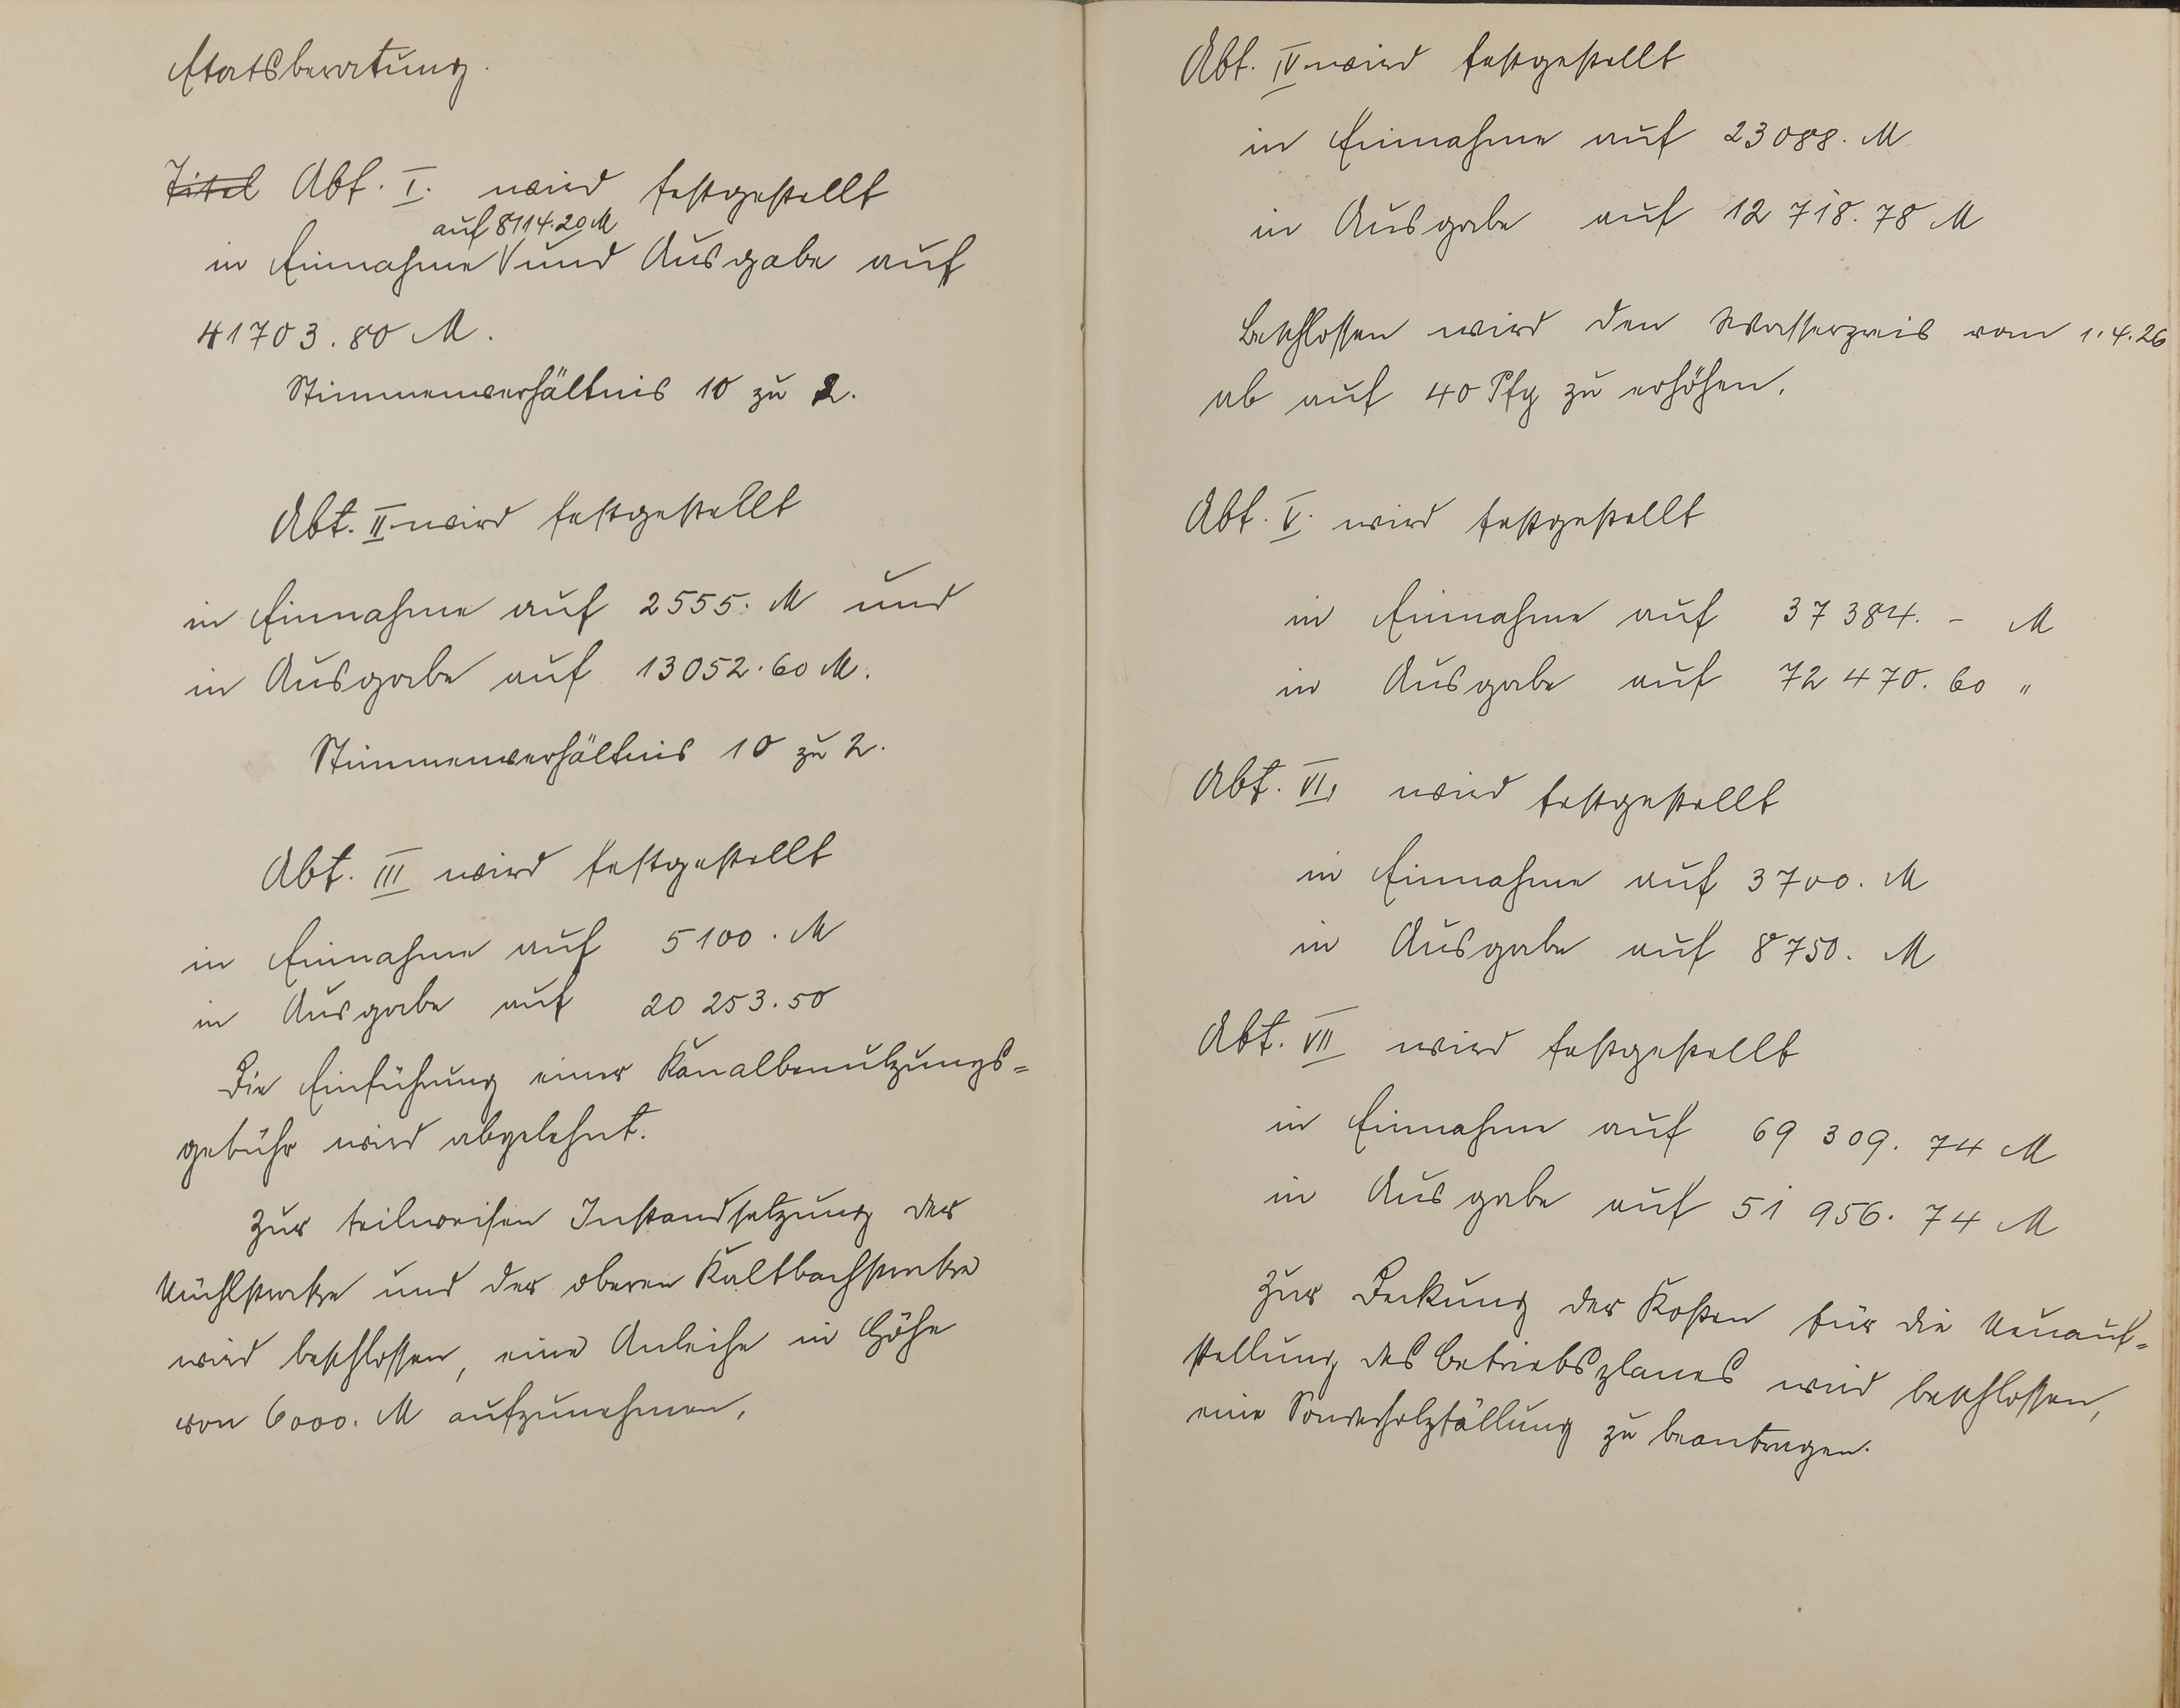 Etatsberatung.
Titel Abt. I. wird festgestellt
auf 8114.20 M
in Einnahme und Ausgabe auf
41703.80 M.
Stimmenverhältnis 10 zu 2.
Abt. II. wird festgestellt
in Einnahme auf 2555. M und
in Ausgabe auf 13052.60 M.
Stimmenverhältnis 10 zu 2.
Abt. III wird festgestellt
in Einnahme auf 5100. M
in Ausgabe auf 20 253.50
Die Einführung einer Kanalbenutzungs=
gebühr wird abgelehnt.
Zur teilweisen Instandsetzung der
Mühlstraße und der oberen Kaltbachstraße
wird beschlossen, eine Anleihe in Höhe
von 6000. M aufzunehmen.
Abt. IV. wird festgestellt
in Einnahme auf 23088. M
in Ausgabe auf 12 718.78 M
Beschlossen wird den Wasserpreis vom 1.4.26
ab auf 40 Pfg zu erhöhen.
Abt. V. wird festgestellt
in Einnahme auf 37 384. - M
in Ausgabe auf 72 470.60 "
Abt. VI. wird festgestellt
in Einnahme auf 3700. M
in Ausgabe auf 8750. M
Abt. VII wird festgestellt
in Einnahme auf 69 309.74 M
in Ausgabe auf 51 956.74 M
Zur Deckung der Kosten für die Neuauf=
stellung des Betriebsplanes wird beschlossen,
eine Sonderholzfällung zu beantragen.